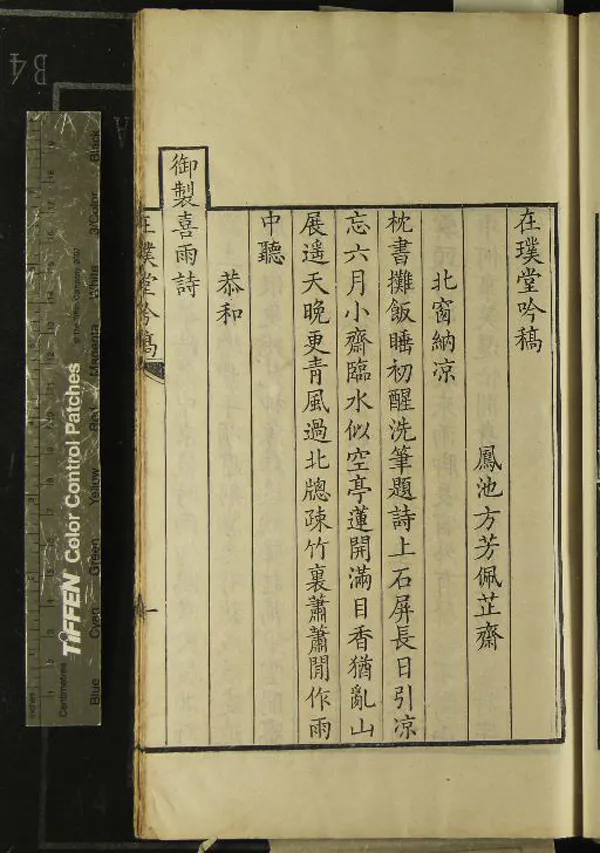 在璞堂吟稿
鳳池方芳佩芷齋
北窗納凉
枕書攤飯睡初醒洗筆題詩上石屏長日引凉
忘六月小齋臨水似空亭蓮開滿目香猶亂山
展遥天晚更青風過北牕疎竹裏蕭蕭閒作雨
中聽
恭和
御製喜雨詩
在璞堂吟稿
一
B4
A
TIFFEN Color Control Patches
© The Tiffen Company, 2007
Inches
Centimetres
Blue Cyan Green Yellow Red Magenta White 3/Color Black